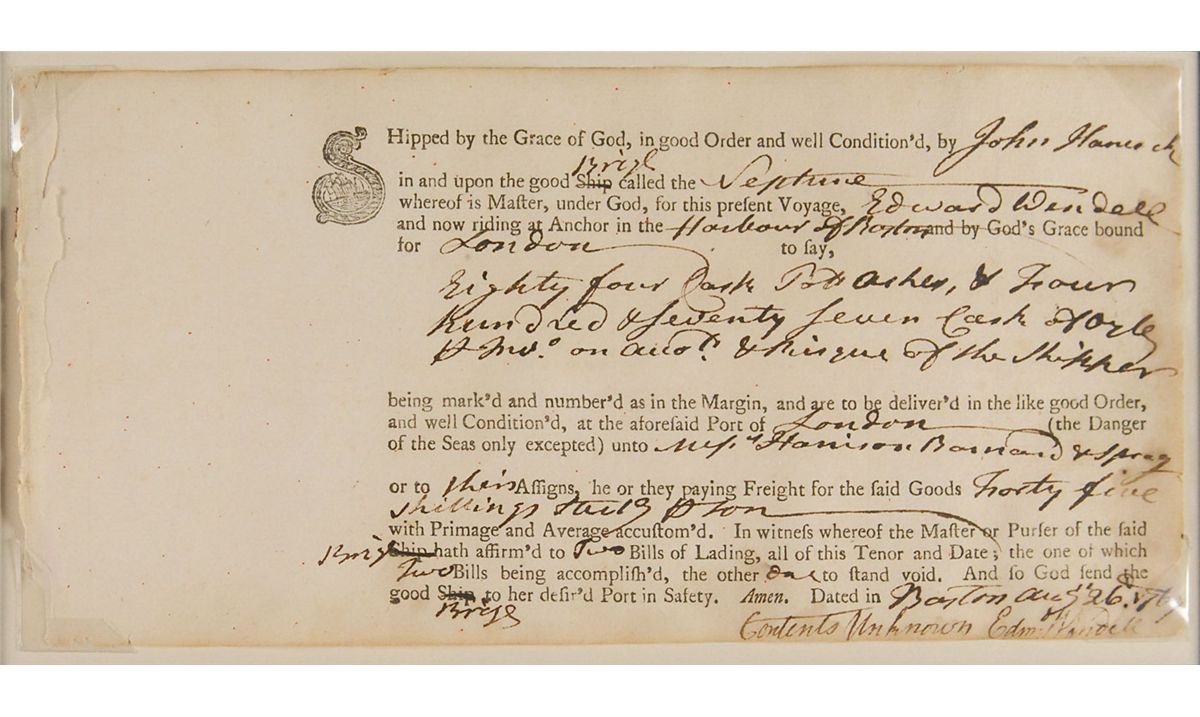 SHipped by the Grace of God, in good Order and well Condition'd, by John Hancock
Brigt
in and upon the good Ship called the Neptune
whereof is Maſter, under God, for this preſent Voyage, Edward Wendell
and now riding at Anchor in the Harbour of Boston and by God's Grace bound
for London to ſay,
Eighty four Cask Pott ashes, & Four
hundred & seventy seven Cask of Oyle
Invo. on accot. & Risque of the Shipper
being mark'd and number'd as in the Margin, and are to be deliver'd in the like good Order,
and well Condition'd, at the aforeſaid Port of London (the Danger
of the Seas only excepted) unto Messrs Harrison Barnard & Sprag
or to their Aſſigns, he or they paying Freight for the ſaid Goods Forty five
shillings Sterlg ton
with Primage and Average accuſtom'd. In witneſs whereof the Maſter or Purſer of the ſaid
Brigt Ship hath affirm'd to Two Bills of Lading, all of this Tenor and Date; the one of which
Two Bills being accompliſh'd, the other One to ſtand void. And ſo God ſend the
good Ship to her deſir'd Port in Safety. Amen. Dated in Boston Augt 26.
Brigt
Contents Unknown Edwd Wendell